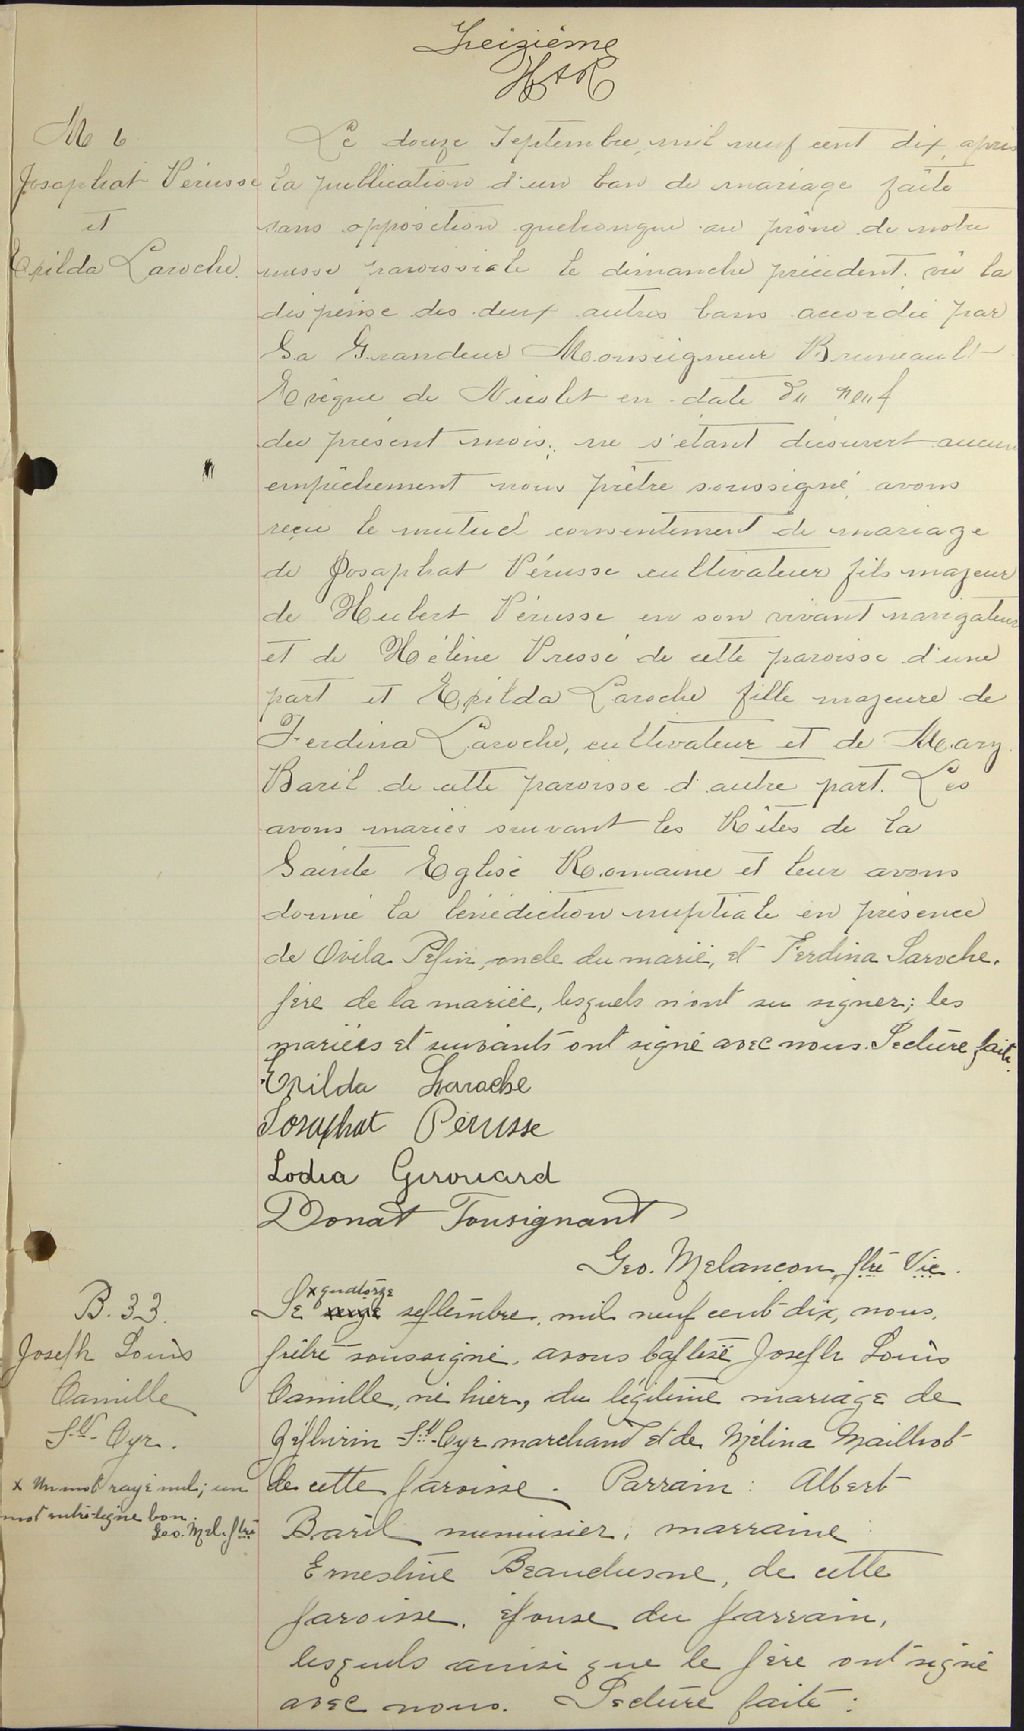 Treizième
HAR
M 6
Josaphat Pérusse
et
Exilda Laroche.
Le douze Septembre, mil neuf cent dix, après
la publication d'un ban de mariage faite
sans opposition quelconque au prône de notre
messe paroissiale le dimanche précédent, vû la
dispense des deux autres bans accordée par
Sa Grandeur Monseigneur Bruneault
Evêque de Nicolet en date du neuf
du présent mois; ne s'étant découvert aucun
empêchement nous prêtre soussigné, avons
reçu le mutuel consentement de mariage
de Josaphat Pérusse cultivateur fils majeur
de Hubert Pérusse en son vivant navigateur
et de Hélène Pressé de cette paroisse d'une
part et Exilda Laroche fille majeure de
Ferdina Laroche, cultivateur et de Mary
Baril de cette paroisse d'autre part. Les
avons mariés suivant les Rites de la
Sainte Eglise Romaine et leur avons
donné la bénédiction nuptiale en présence
de Ovila Pépin, oncle du marié, et Ferdina Laroche,
père de la mariée, lesquels n'ont su signer; les
mariés et suivants ont signé avec nous. Lecture faite.
Exilda Laroche
Josaphat Pérusse
Lodia Girouard
Donat Tousignant
Geo. Melançon, ptre Vic.
B. 33.
Joseph Louis
Camille
St-Cyr.
x Un mot rayé nul; un
mot entre-ligne bon.
Geo. Mel. ptre
x quatorze
Le septembre, mil neuf cent dix, nous,
prêtre soussigné, avons baptisé Joseph Louis
Camille, né hier, du légitime mariage de
Zéphirin St-Cyr marchand et de Mélina Mailhot
de cette paroisse. Parrain: Albert
Baril menuisier; marraine:
Ernestine Beauchesne, de cette
paroisse, épouse du parrain,
lesquels ainsi que le père ont signé
avec nous. Lecture faite: